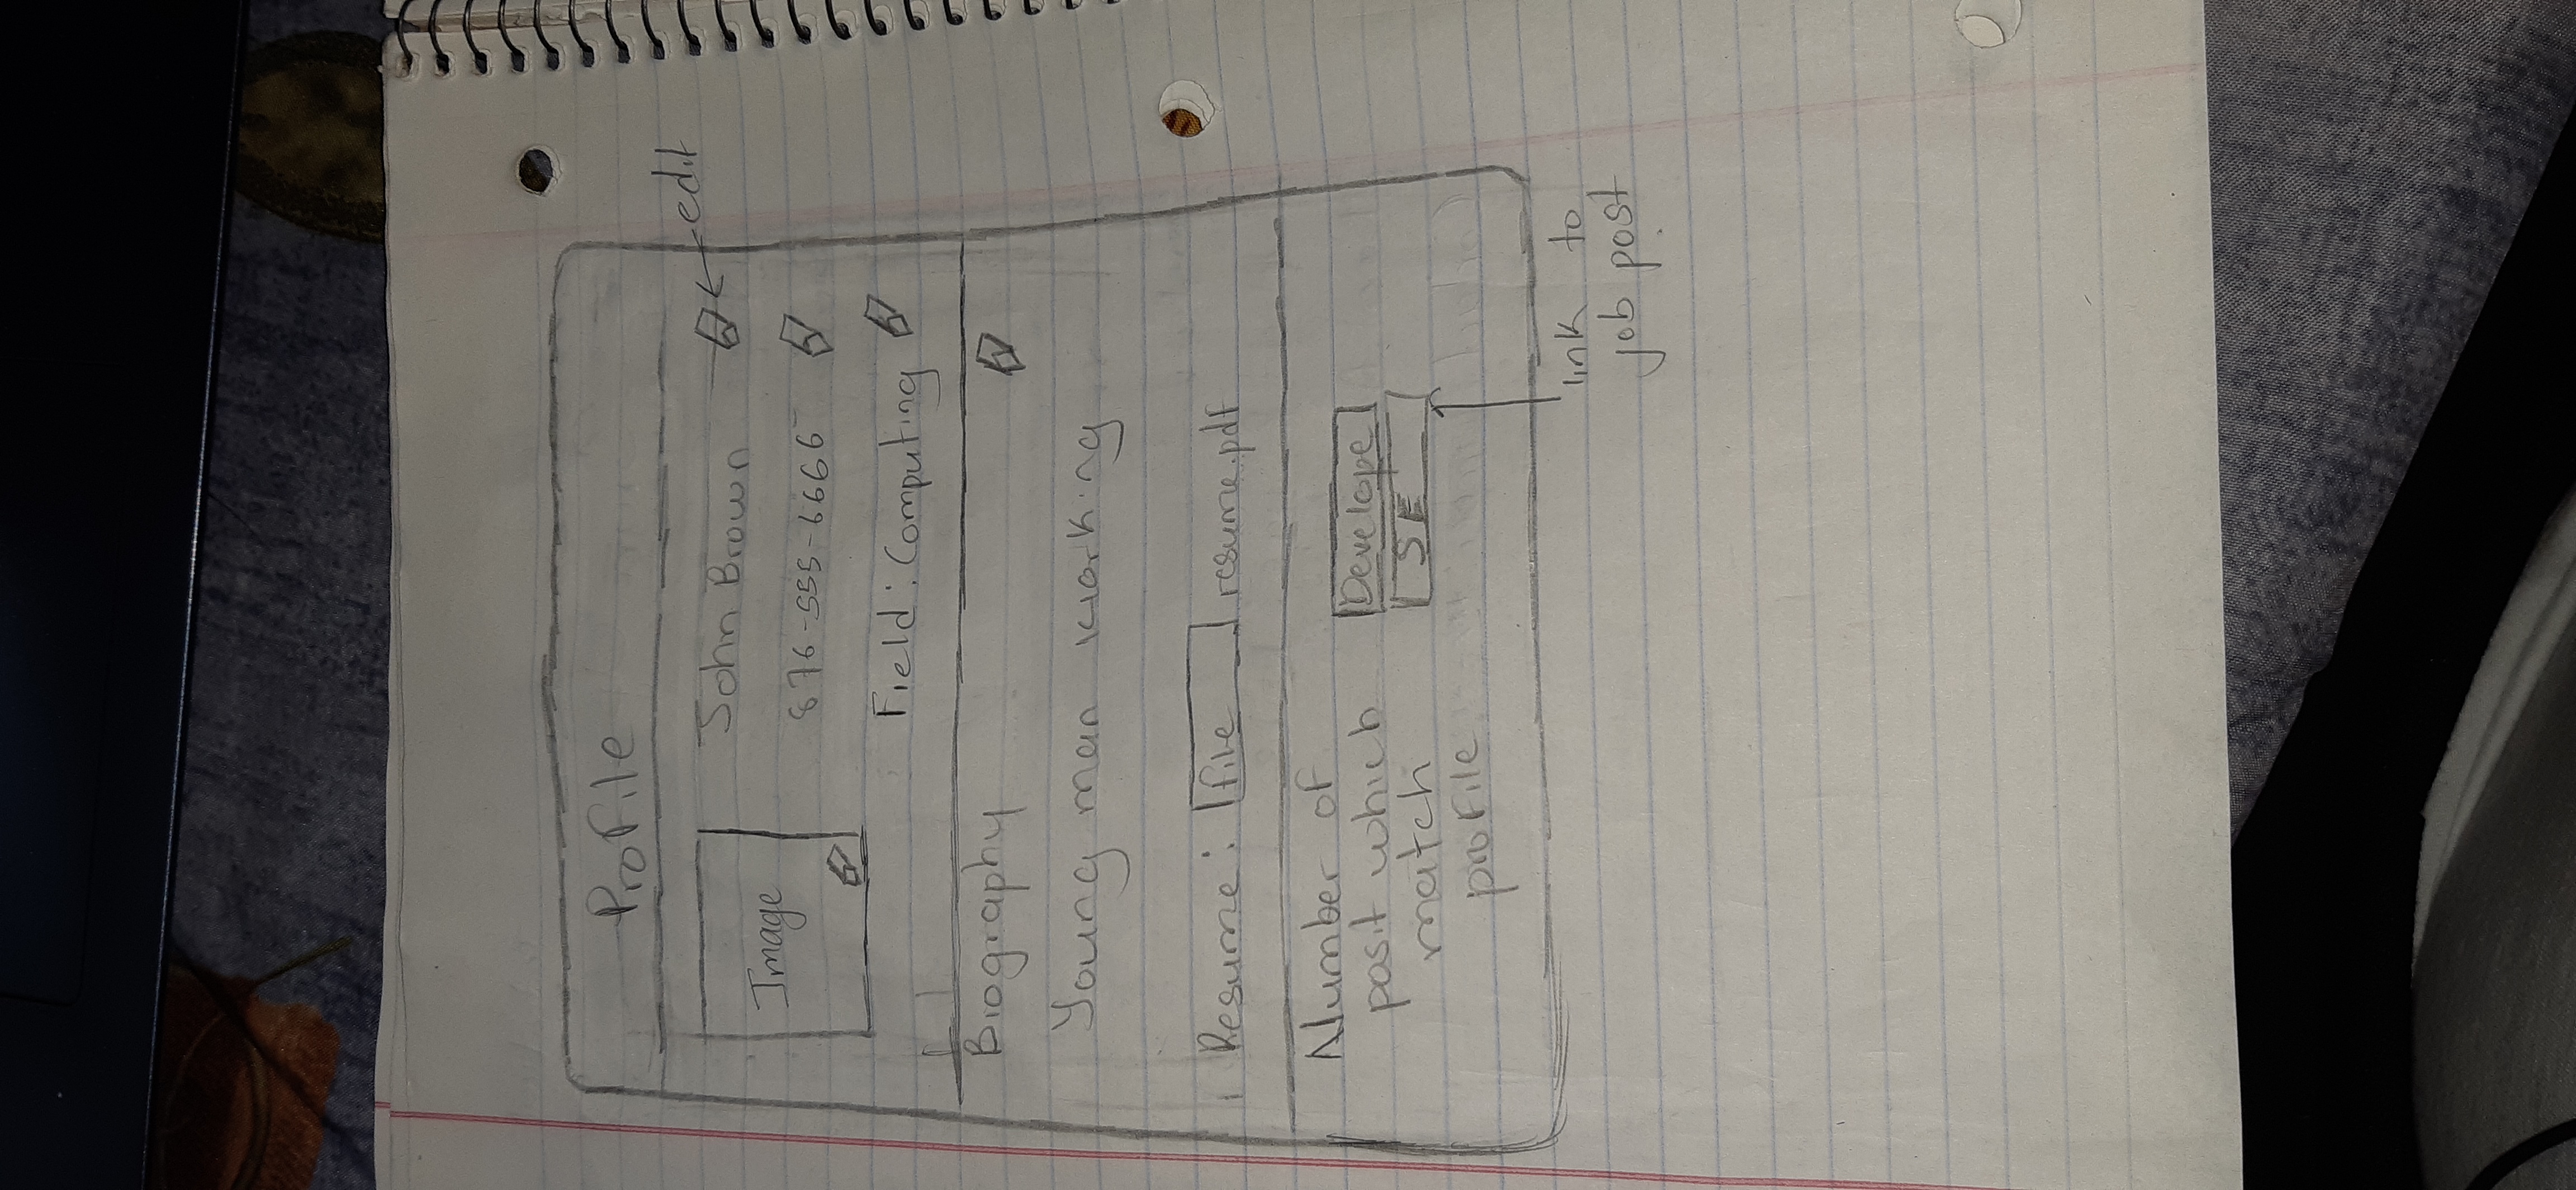 Profile
edit
John Brown
Image
876-555-6666
Field: Computing
Biography
Young man working
Resume: file resume.pdf
Number of
posit which
match
profile
Develope
SE
link to
job post